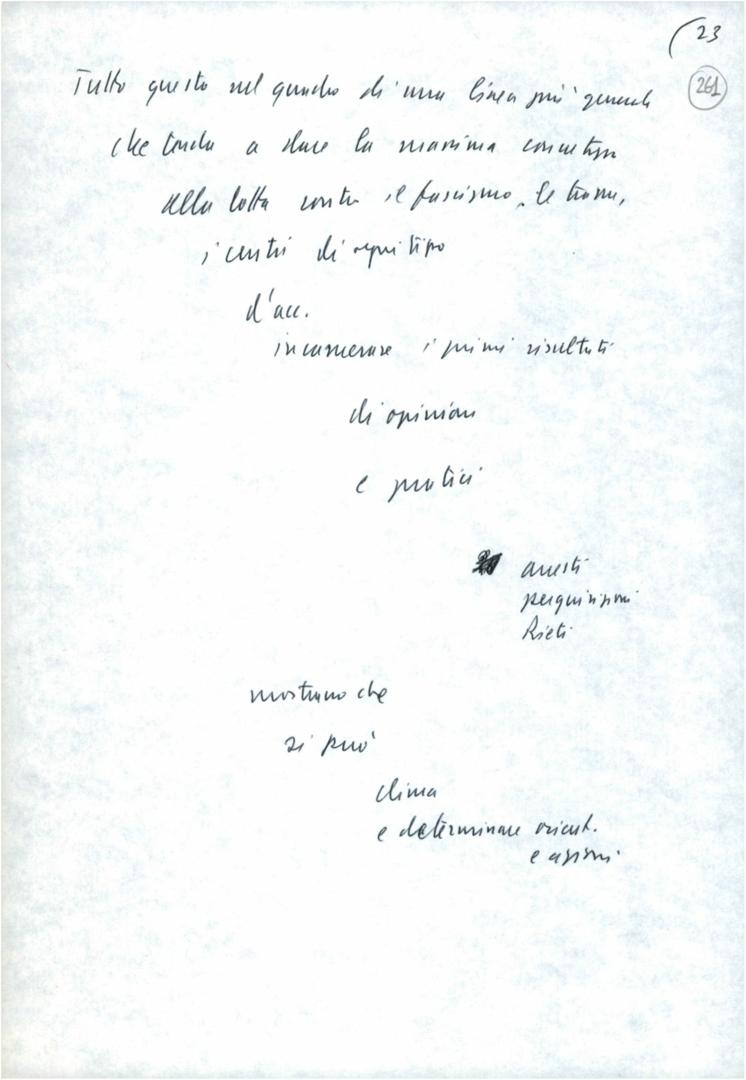 (23
261
Tutto questo nel quadro di una linea più generale
che tenda a dare la massima concretezza
alla lotta contro il fascismo, le trame,
i centri di ogni tipo
d'acc.
incamerare i primi risultati
di opinione
e pratici
arresti
perquisizioni
Rieti
mostrano che
si può
clima
e determinare orient.
e azioni